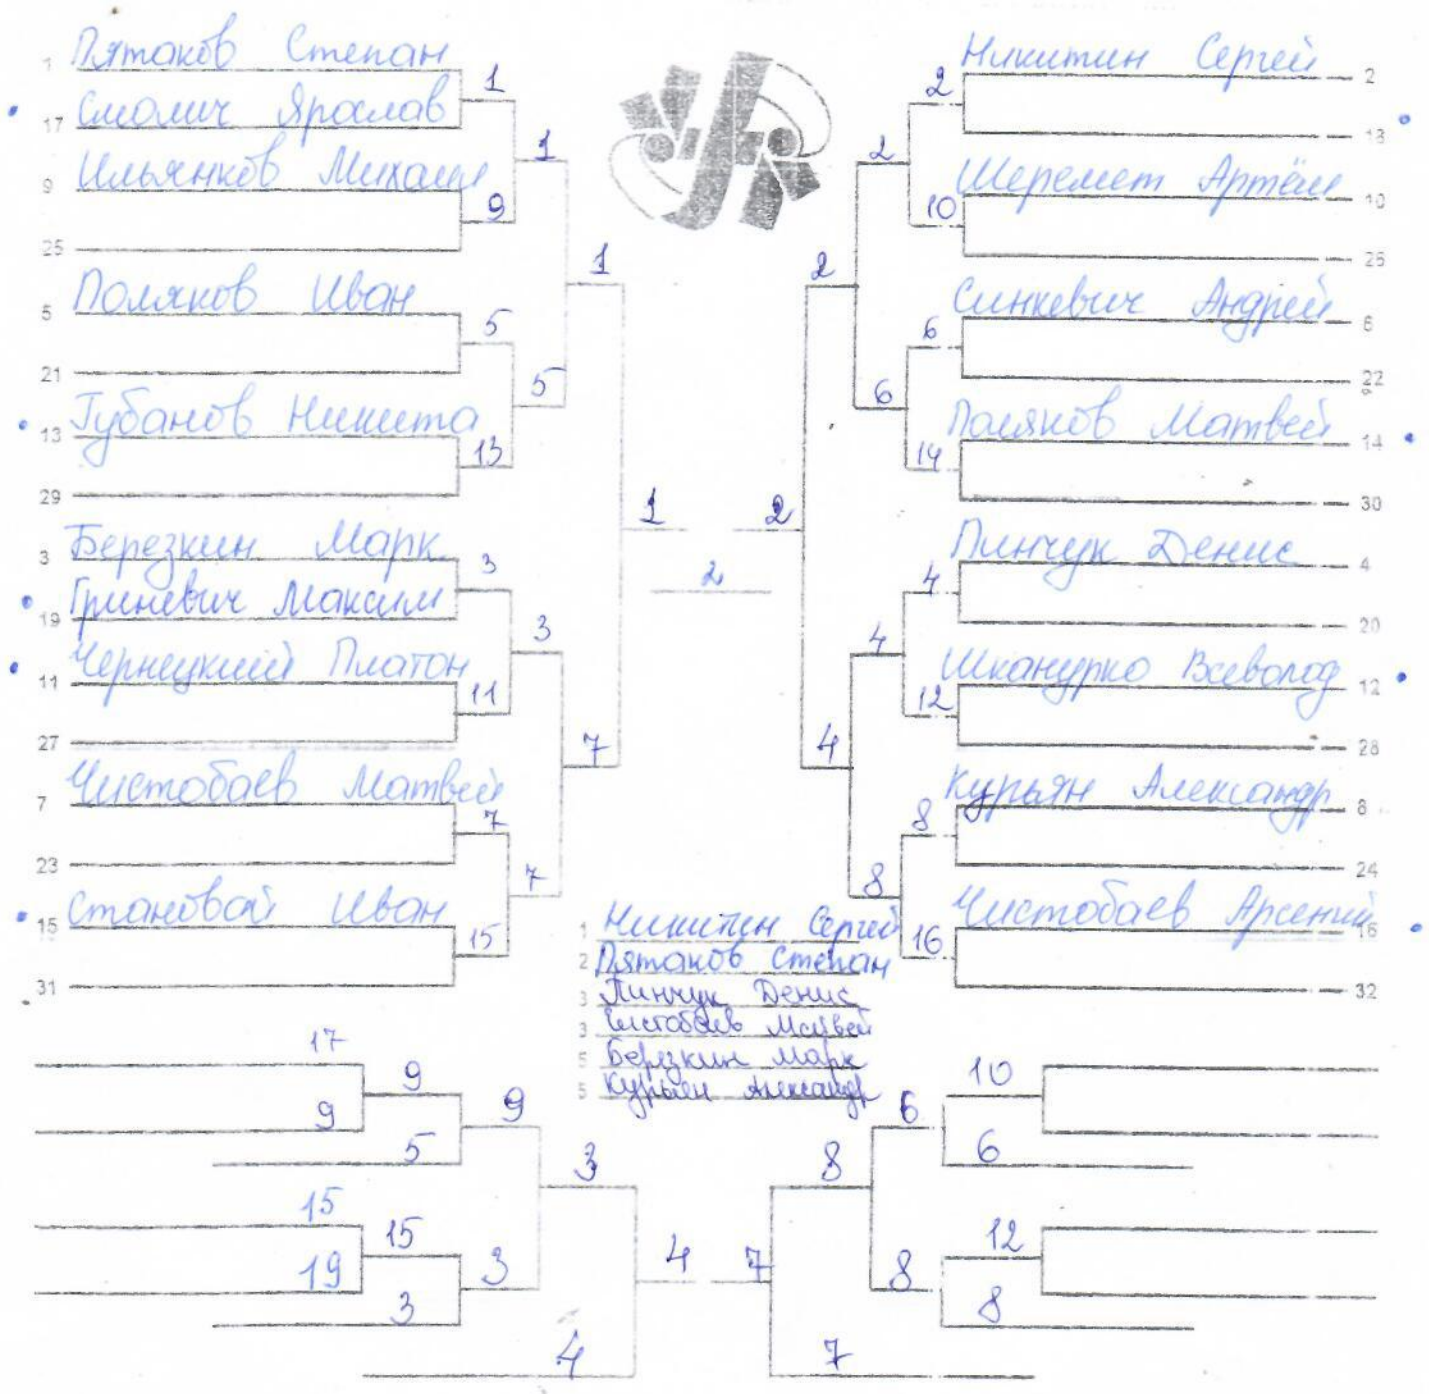 1 Пятаков Степан
1
17 Смолич Ярослав
1
9 Ильянков Михаил
9
25
1
5 Поляков Иван
5
21
5
13 Губанов Никита
13
29
1
3 Березкин Марк
3
19 Гриневич Максим
3
11 Чернецкий Платон
11
27
7
7 Чистобаев Матвей
7
23
7
15 Становой Иван
15
31
Никитин Сергей 2
2
18
2
Шеремет Артём 10
10
26
2
Синкевич Андрей 6
6
22
6
Поляков Матвей 14
14
30
2
2
Пинчук Денис 4
4
20
4
Шканурко Всеволод 12
12
28
4
Курьян Александр 8
8
24
8
Чистобаев Арсений 16
16
32
1 Никитин Сергей
2 Пятаков Степан
3 Пинчук Денис
3 Чистобаев Матвей
5 Березкин Марк
5 Курьян Александр
17
9
9
9
5
3
15
15
19
3
3
4
4
10
6
6
8
12
8
8
7
7